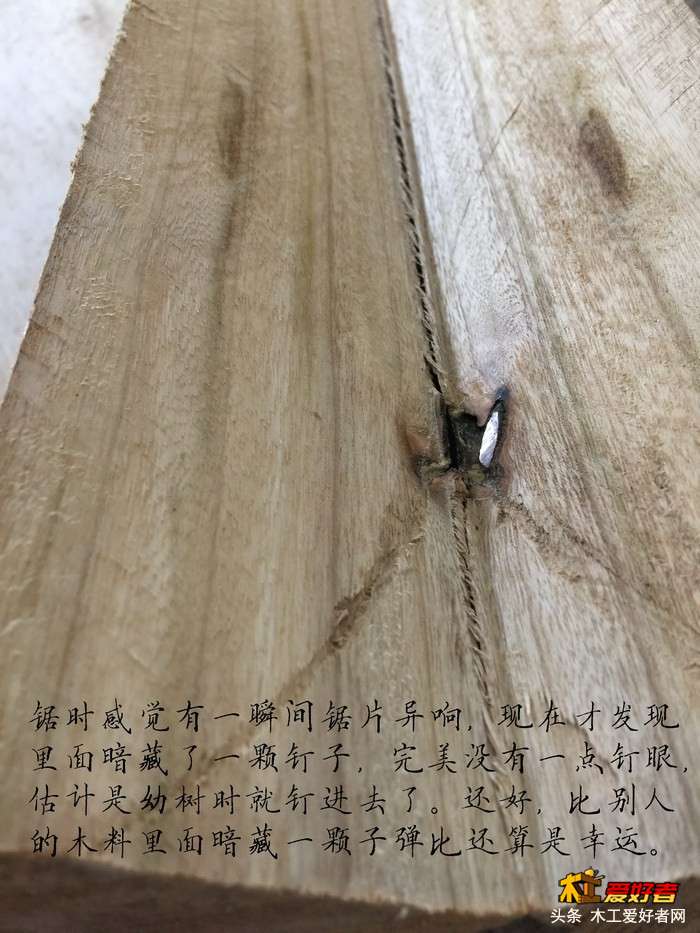 锯时感觉有一瞬间锯片异响，现在才发现
里面暗藏了一颗钉子，完美没有一点钉眼，
估计是幼树时就钉进去了。还好，比别人
的木料里面暗藏一颗子弹比还算是幸运。
木工爱好者
头条 木工爱好者网